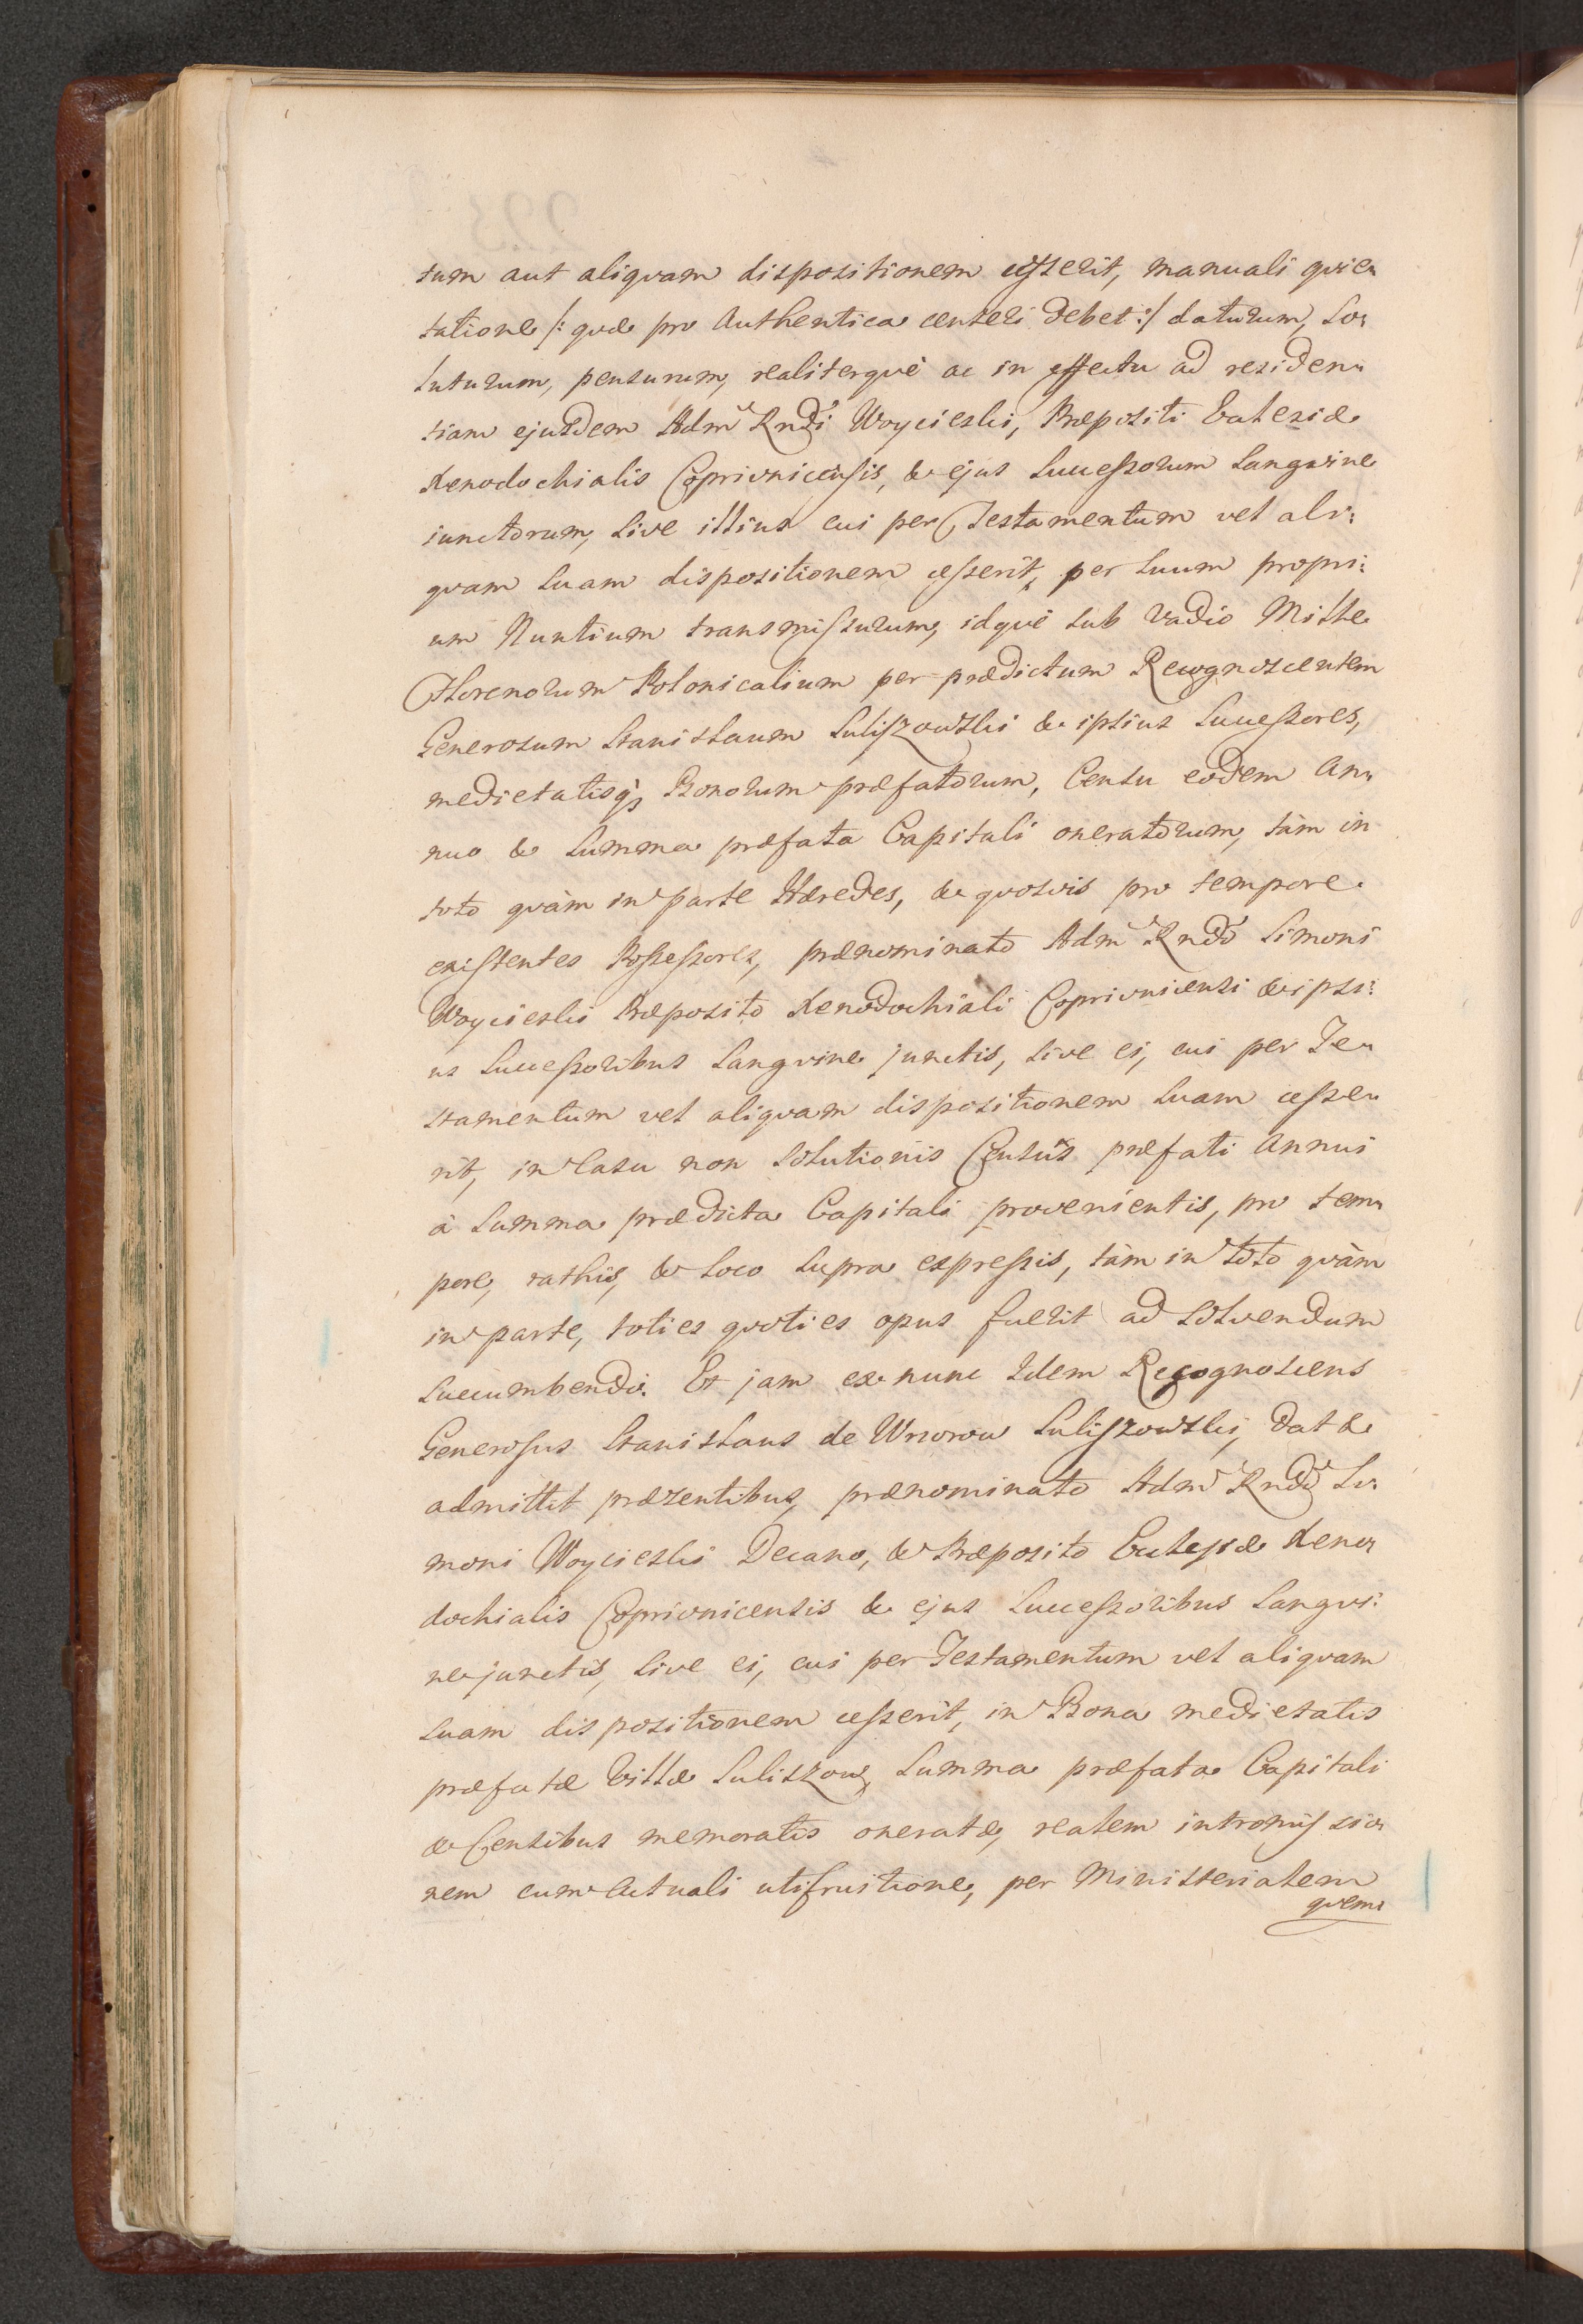 tum aut aliqvam dispositionem cesserit, manuali qvie-
tatione /: qvæ pro Authentica censeri debet :/ daturum, so-
luturum, pensurum, realiterqvè ac in effectu ad residen-
tiam ejusdem Adm Rndi Woycieski, Præpositi Eccleziæ
Xenodochialis Coprivnicensis, & ejus Successorum Sangvine
iunctorum, sive illius cui per Testamentum vel ali:
qvam suam dispositionem cesserit, per suum propri:
um Nuntium transmissurum, idqvè sub vadio Mille
Florenorum Polonicalium per prædictum Recognoscentem
Generosum Stanislaum Suliszowski & ipsius Successores,
medietatisq; Bonorum præfatorum, Censu eodem An-
nuo & Summa præfata Capitali oneratorum, tàm in
toto qvàm in parte Hæredes, & qvosvis pro tempore
existentes Possessores, prænominato Adm Rndo Simoni
Woycieski Præposito Xenodochiali Coprivnicensi & ipsi:
us Successoribus Sangvine junctis, sive ei, cui per Te-
stamentum vel aliqvam dispositionem suam cesse-
rit, in Casu non solutionis Censûs præfati Annui
à Summa prædicta Capitali provenientis, pro tem-
pore, rathis, & loco supra expressis, tàm in toto qvàm
in parte, toties qvoties opus fuerit ad solvendum
succumbendo. Et jam ex nunc Idem Recognoscens
Generosus Stanislaus de Wrorow Suliszowski, dat &
admittit præzentibus, prænominato Adm Rndo Si-
moni Woycieski Decano, & Præposito Eccleziæ Xeno-
dochialis Coprivnicensis & ejus Successoribus Sangvi:
ne junctis, sive ei, cui per Testamentum vel aliqvam
suam dispositionem cesserit, in Bona medietatis
præfatæ Villæ Suliszow, Summa præfata Capitali
& Censibus memoratis oneratæ, realem intromissio-
nem cum Actuali utifruitione, per Ministerialem
qvem-